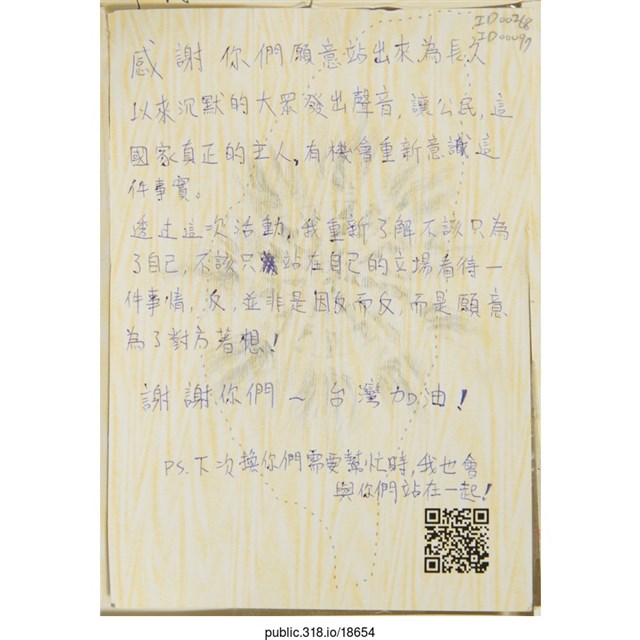 ID00268
ID00097
感謝你們願意站出來為長久
以來沉默的大眾發出聲音,讓公民,這
國家真正的主人,有機會重新意識這
件事實。
透过這次活動,我重新了解不該只為
了自己,不該只站在自己的立場看待一
件事情,反,並非是因反而反,而是願意
為了對方著想!
謝謝你們~台灣加油!
PS.下次換你們需要幫忙時,我也會
與你們站在一起!
public.318.io/18654